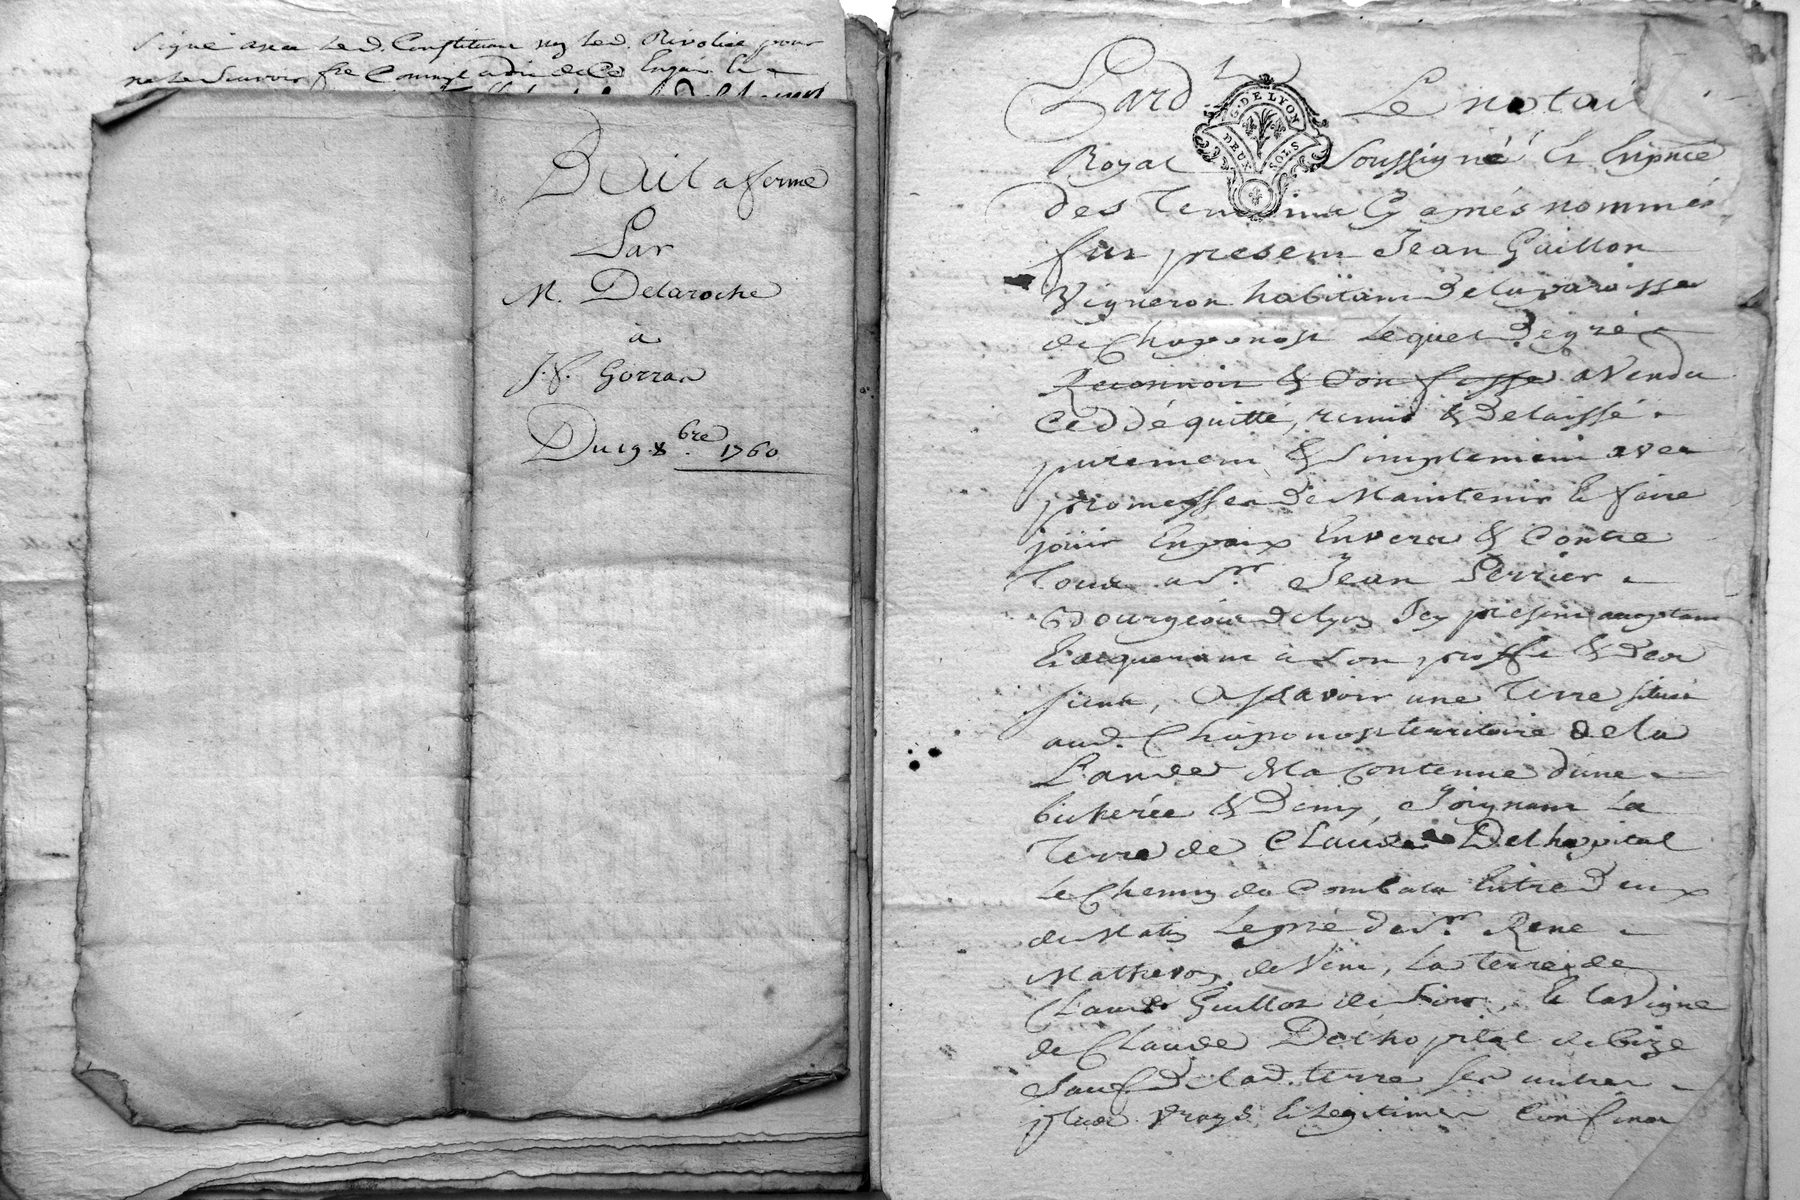 signé avec led. Constituan non led. Rivoliee pour
ne le Scavoir fre
Bail a ferme
Par
M. Delaroche
à
J. F. Gorran
Du 19. 8.bre 1760
Pard Le notai
G. DE LYON
DEUX SOLS
Royal Soussigné & En pnce
des Temoins Cy aprés nommés
fut present Jean Guillon
Vigneron habitant de la paroisse
de Chaponost Lequel de gré
Reconnoit & Confesse a Vendu
Ceddé quitté, remis & delaissé
purement & Simplement avec
promesses de Maintenir & faire
joüir En paix Envers & Contre
tous a Sr. Jean Perrier
Bourgeois de Lyon Icy present acceptant
& acquerant à Son proffit & des
Siens, Asscavoir une Terre située
aud. Chaponost territoire de la
Lande de la Contenue d'une
bicherée & Demy, Joignant La
Terre de Claude Delhopital
Le Chemin de Combala Entre deux
de Matin Le pré de Sr. Rene
Matheron de Vent, La terre de
Claude Guillon de Soir, & la Vigne
de Claude Delhopital de bize
Sauf de lad. terre Ses autres
plus Vrays & Legitimes Confins